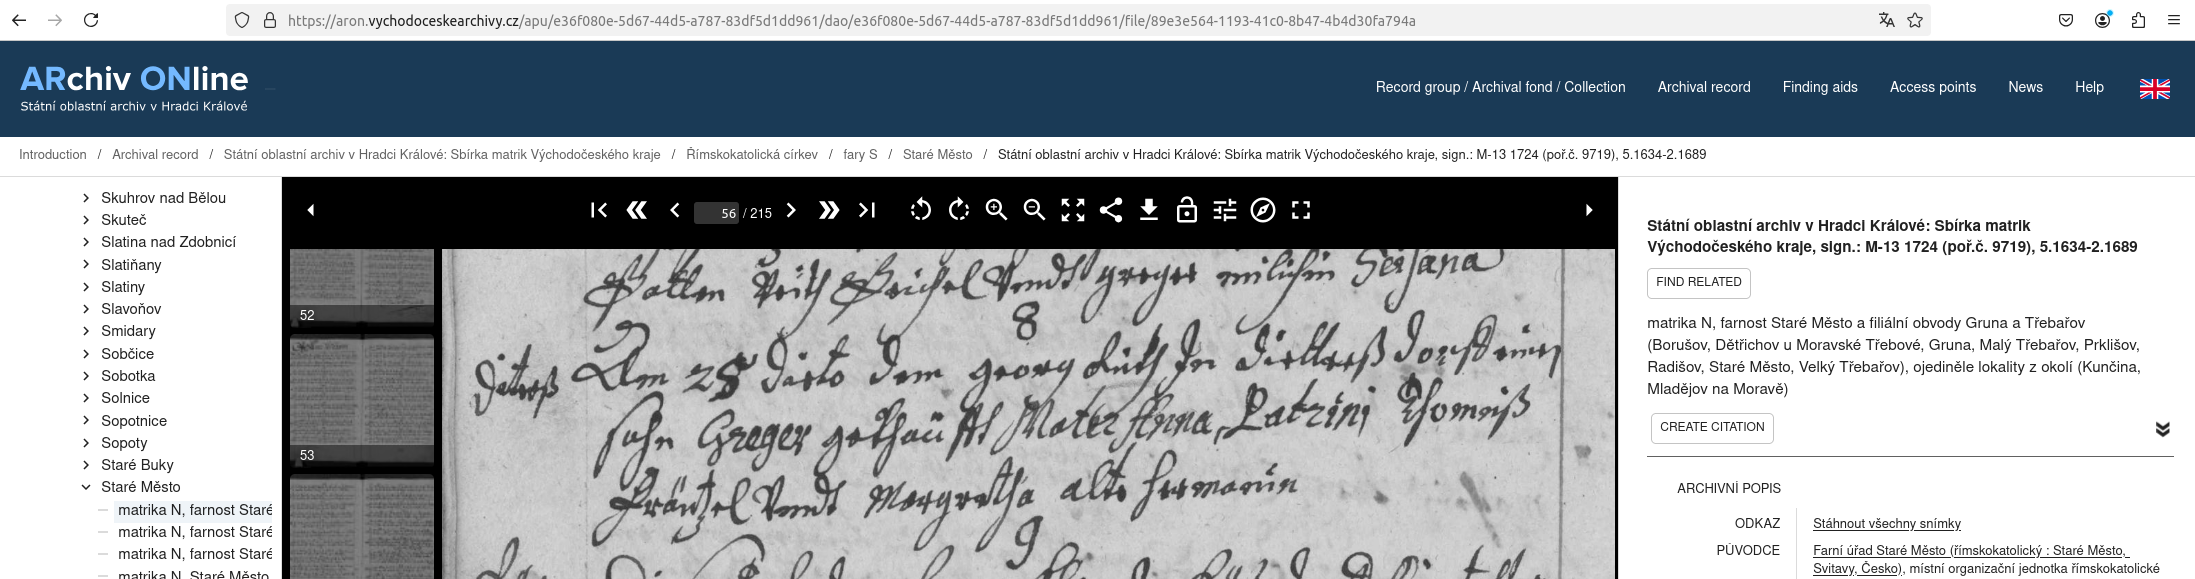 https://aron.vychodoceskearchivy.cz/apu/e36f080e-5d67-44d5-a787-83df5d1dd961/dao/e36f080e-5d67-44d5-a787-83df5d1dd961/file/89e3e564-1193-41c0-8b47-4b4d30fa794a
ARchiv ONline
Státní oblastní archiv v Hradci Králové
Record group / Archival fond / Collection
Archival record
Finding aids
Access points
News
Help
Introduction / Archival record / Státní oblastní archiv v Hradci Králové: Sbírka matrik Východočeského kraje / Římskokatolická církev / fary S / Staré Město / Státní oblastní archiv v Hradci Králové: Sbírka matrik Východočeského kraje, sign.: M-13 1724 (poř.č. 9719), 5.1634-2.1689
Skuhrov nad Bělou
Skuteč
Slatina nad Zdobnicí
Slatiňany
Slatiny
Slavoňov
Smidary
Sobčice
Sobotka
Solnice
Sopotnice
Sopoty
Staré Buky
Staré Město
matrika N, farnost Staré
matrika N, farnost Staré
matrika N, farnost Staré
matrika N, Staré Město
56 / 215
52
53
Vndt greger
8
Am 28 dito dem georg In
sohn Greger gethaufft Mater Anna, Patrini
Vndt Margretha alte
9
Státní oblastní archiv v Hradci Králové: Sbírka matrik
Východočeského kraje, sign.: M-13 1724 (poř.č. 9719), 5.1634-2.1689
FIND RELATED
matrika N, farnost Staré Město a filiální obvody Gruna a Třebařov
(Borušov, Dětřichov u Moravské Třebové, Gruna, Malý Třebařov, Prklišov,
Radišov, Staré Město, Velký Třebařov), ojediněle lokality z okolí (Kunčina,
Mladějov na Moravě)
CREATE CITATION
ARCHIVNÍ POPIS
ODKAZ
Stáhnout všechny snímky
PŮVODCE
Farní úřad Staré Město (římskokatolický : Staré Město,
Svitavy, Česko), místní organizační jednotka římskokatolické